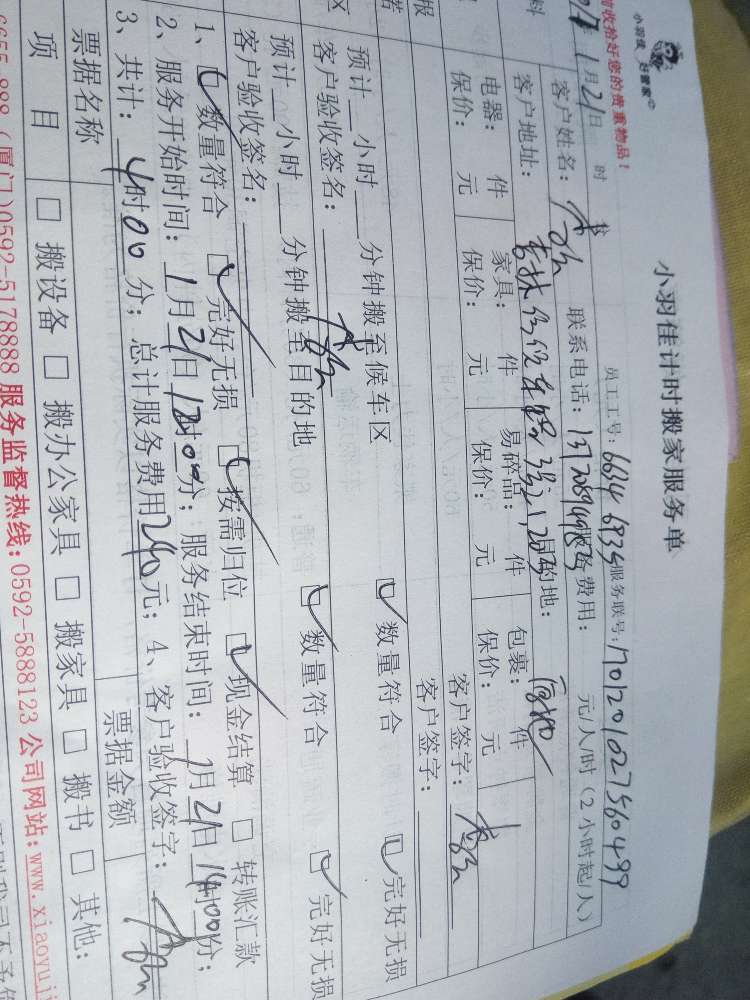 小羽佳 好管家
前收拾好您的贵重物品！
小羽佳计时搬家服务单
员工工号: 6634 6835 服务联号: 170120102275560499
1月21日 时
料 客户姓名: 联系电话: 13720894983 服务费用: 元/人/时（2小时起/人）
客户地址: 目的地: 同地
电器: 件 家具: 件 易碎品: 件 包裹: 件
保价: 元 保价: 元 保价: 元 保价: 元
客户签字:
报 客户签字:
预计 小时 分钟搬至候车区
区 客户验收签名: 数量符合 完好无损
预计 小时 分钟搬至目的地
客户验收签名: 数量符合 完好无损
1、 数量符合 完好无损 按需归位 现金结算 转账汇款
2、服务开始时间: 1月21日12时00分；服务结束时间: 1月21日14时00分；
3、共计: 4时00分；总计服务费用240元；4、客户验收签字:
票据名称 票据金额
项 目 搬设备 搬办公家具 搬家具 搬书 其他:
6655-888（厦门）0592-5178888 服务监督热线: 0592-5888123 公司网站: www.xiaoyuji